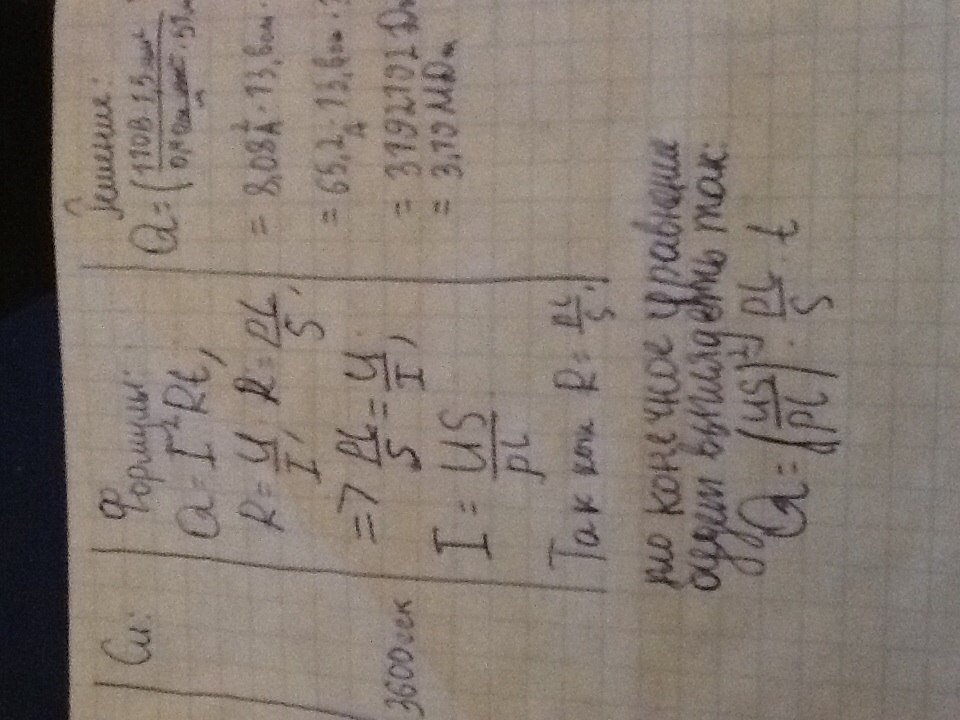 Си:
3600сек
Формулы:
Q=I²Rt,
R=U/I, R=ρL/S,
=> ρL/S=U/I,
I=US/ρL
Так как R=ρL/S,
то конечное уравнение
будет выглядеть так:
Q=(US/ρL)²·ρL/S·t
Решение:
Q=(110В·1,3мм²
= 8,08А²·13,6
= 65,2А·13,6
= 3192102 Дж
= 3,19 МДж